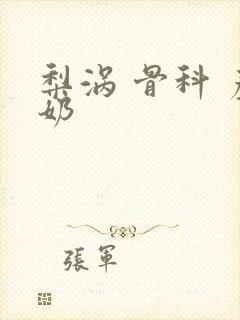 梨涡 骨科
奶
張軍